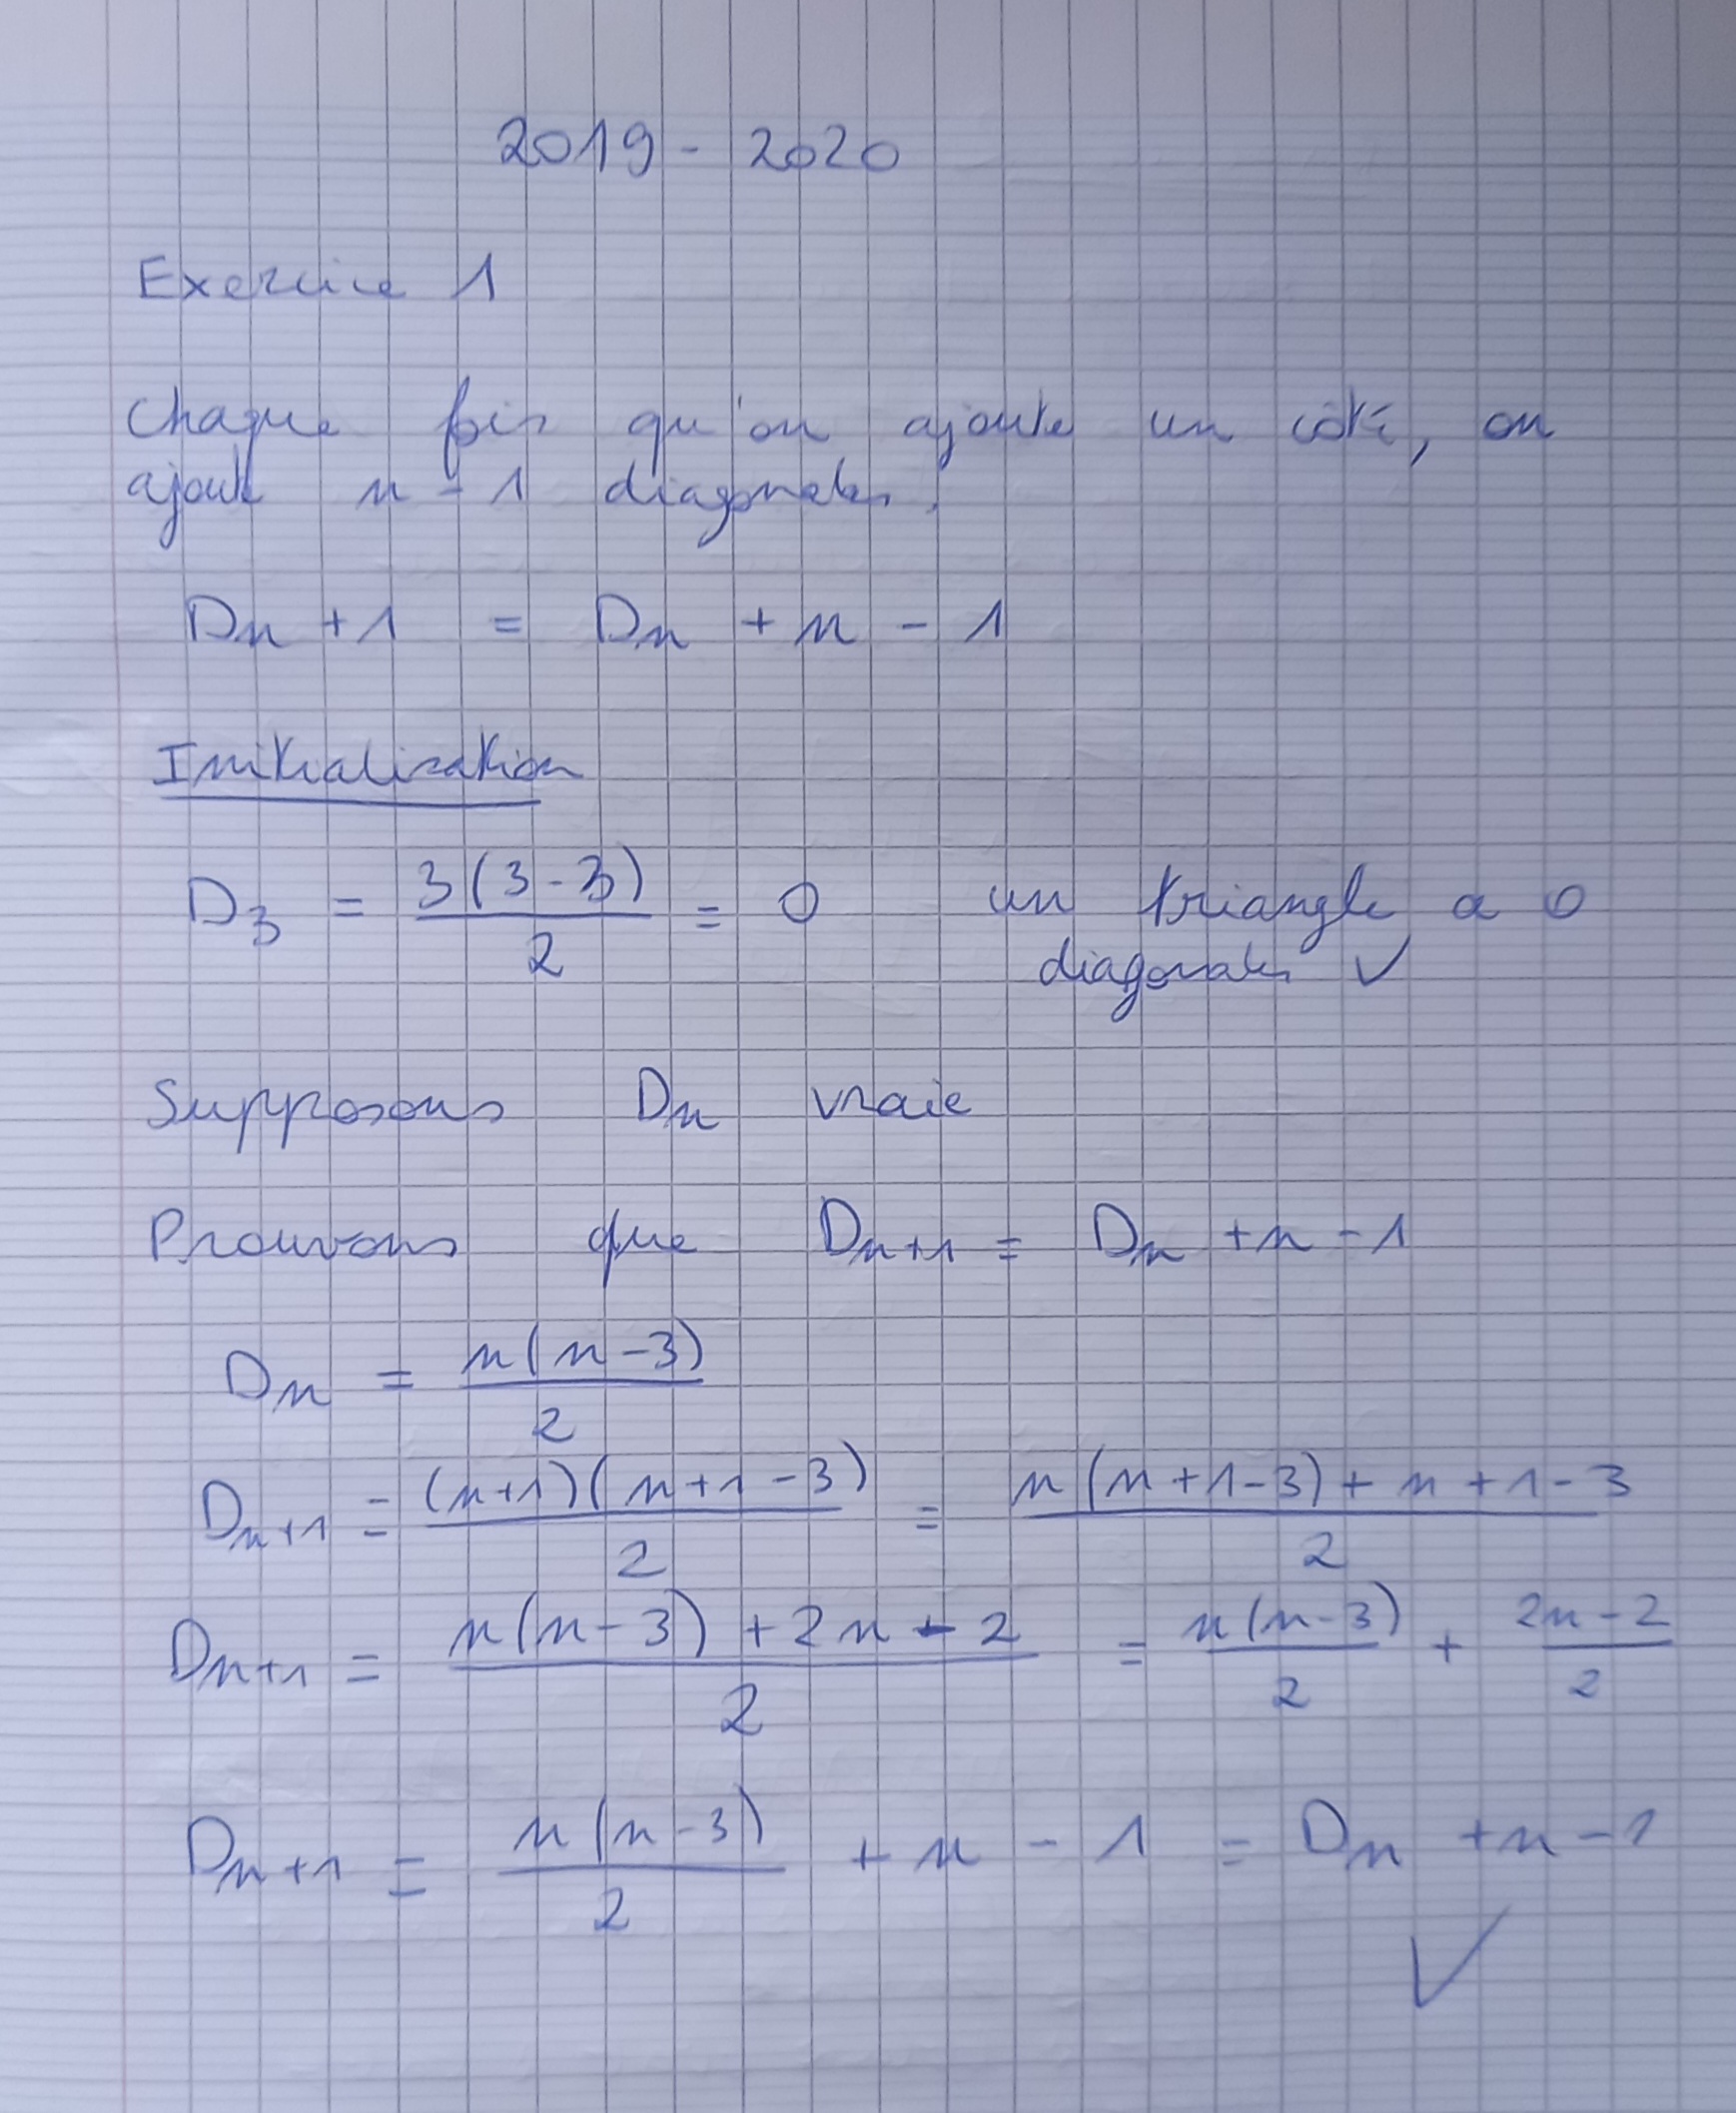 2019 - 2020
Exercice 1
Chaque fois qu'on ajoute un côté, on
ajoute n - 1 diagonales.
Dn + 1 = Dn + n - 1
Initialisation
D₃ = 3(3-3)/2 = 0 un triangle a 0
diagonales ✓
Supposons Dn vraie
Prouvons que Dn+1 = Dn + n - 1
Dn = n(n-3)/2
Dn+1 = (n+1)(n+1-3)/2 = n(n+1-3) + n + 1 - 3/2
Dn+1 = n(n-3) + 2n - 2/2 = n(n-3)/2 + 2n-2/2
Dn+1 = n(n-3)/2 + n - 1 = Dn + n - 1
✓